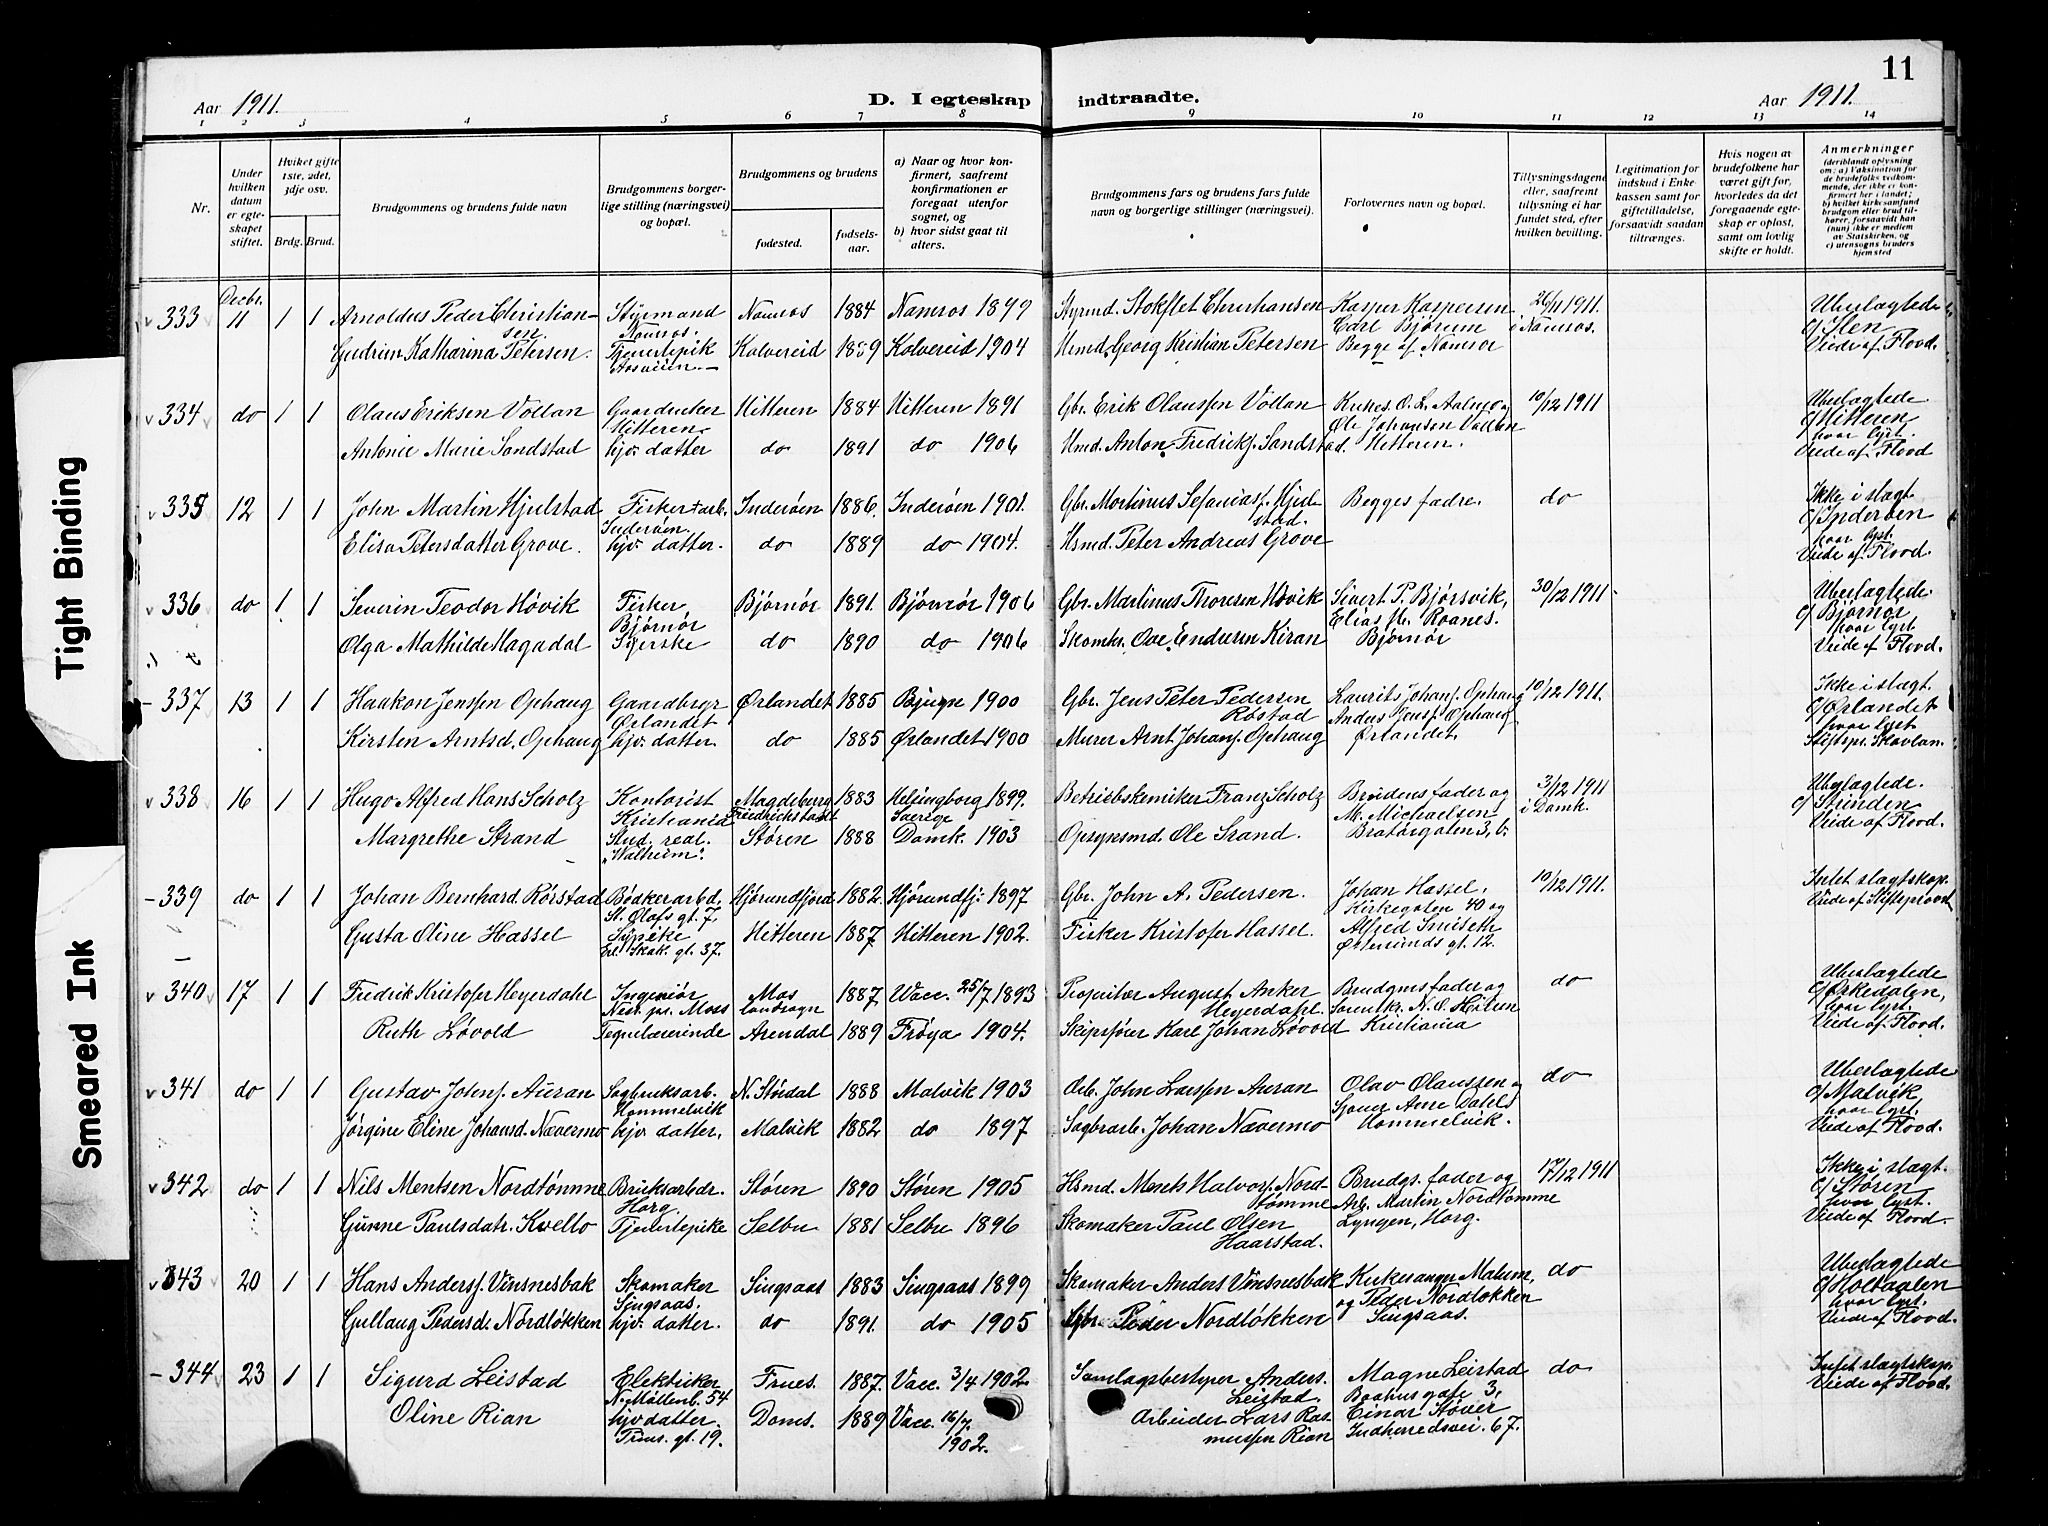 11
Aar 1911.
D. I egteskap indtraadte.
Aar 1911.
1 2 3 4 5 6 7 8 9 10 11 12 13 14
Nr.
Under hvilken datum er egteskapet stiftet.
Hvilket gifte 1ste, 2det, 3dje osv.
Brdg. Brud.
Brudgommens og brudens fulde navn
Brudgommens borgerlige stilling (næringsvei) og bopæl.
Brudgommens og brudens
fødested.
fødselsaar.
a) Naar og hvor konfirmert, saafremt konfirmationen er foregaat utenfor sognet, og
b) hvor sidst gaat til alters.
Brudgommens fars og brudens fars fulde navn og borgerlige stillinger (næringsvei).
Forlovernes navn og bopæl.
Tillysningsdagene eller, saafremt tillysning ei har fundet sted, efter hvilken bevilling.
Legitimation for indskud i Enkekassen samt for giftetilladelse, forsaavidt saadan tiltrænges.
Hvis nogen av brudefolkene har været gift før, hvorledes da det foregaaende egteskap er opløst, samt om lovlig skifte er holdt.
Anmerkninger
(deriblandt oplysning om: a) Vaksination for de brudefolks vedkommende, der ikke er konfirmert her i landet; b) hvilket kirkesamfund brudgom eller brud tilhører, forsaavidt han (hun) ikke er medlem av Statskirken, og c) utensogns bruders hjemsted
Tight Binding
Smeared Ink
333 Decbr. 11 1 1 Arnoldus Peder Christiansen Styrmand Namsos. Namsos 1884 Namsos 1899 Styrmd. Stokflet Christiansen Kasper Kaspersen Carl Bjørum 26/11 1911. i Namsos. Ubeslægtede
c/ Ilen
Gudrun Katharina Petersen. Kolvereid 1889 Kolvereid 1904 Hsmd. Georg Kristian Petersen Begge af Namsos Viede af Flood.
334 do 1 1 Olaus Eriksen Vollan Gaardbruker Hitteren Hitteren 1884 Hitteren 1891 Gbr. Erik Olaussen Vollan Ole Johansen Vollan 10/12 1911 Ubeslægtede
c/ Hitteren
hvor lyst.
Antonie Marie Sandstad hjv. datter do 1891 do 1906 Hsmd. Anton Fredriks. Sandstad. Hitteren. Viede af Flood
335 12 1 1 John Martin Hjulstad Fisker + arb. Inderøen. Inderøen 1886. Inderøen 1901. Begges fædre. do Ikke i slægt.
c/ Inderøen
hvor lyst.
Elisa Petersdatter Grove. hjv. datter. do 1889 do 1904. Hsmd. Peter Andreas Grove Viede af Flood.
336 do 1 1 Severin Teodor Høvik Fisker, Bjørnør Bjørnør 1891. Bjørnør 1906 Gbr. Martinus Thoresen Høvik Sivert P. Bjørsvik, Roanes. 30/12 1911 Ubeslægtede
c/ Bjørnør
hvor lyst.
Olga Mathilde Hagadal Syerske do 1890 do 1906 Skomkr. Ove Endresen Kiran Bjørnør Viede af Flood.
337 13 1 1 Haakon Jenssen Ophaug Gaardbrgr Ørlandet Ørlandet 1885 Bjugn 1900 Gbr. Jens Peter Pedersen Røstad Laurits Johans. Ophaug Anders Jenss. Ophaug 10/12 1911. Ikke i slægt.
c/ Ørlandet
hvor lyst.
Kirsten Arntsd. Ophaug hjv. datter. do 1885 Ørlandet 1900 Murer Arnt Johans. Ophaug Ørlandet. Stiftspr. Skavlan.
338 16 1 1 Hugo Alfred Hans Scholz Kontorist Kristiania Magdeburg Friedrichstadt 1883 Helsingborg 1899. Sverige Betriebskemiker Franz Scholz Brudens fader og M. Michaelsen 3/12 1911 i Domk. Ubeslægtede.
c/ Strinden
Margrethe Strand Stud. real. Støren 1888 Domk. 1903 Opsynsmd. Ole Strand. Viede af Flood.
339 do 1 1 Johan Bernhard Rørstad Bødkerarbd. St. Olafs gt. 7. Hjørundfjord 1882. Hjørundfj. 1897 Gbr. John A. Pedersen. Johan Hassel, Kirkegaten 40 og 10/12 1911. Intet slægtskap.
Viede af Stiftsprovst
Gusta Oline Hassel Sypike Erl. Skak. gt. 37. Hitteren 1887 Hitteren 1902. Fisker Kristofer Hassel. Alfred Smiseth Østersunds gt. 12.
340 17 1 1 Fredrik Kristofer Heyerdahl Ingeniør Moss Mos landsogn 1887 Vacc. 25/7 1893 Proprietær August Anker Heyerdahl. Brudgms fader og do Ubeslægtede
c/ Orkedalen,
hvor lyst.
Ruth Løvold Arendal 1889 Frøya 1904. Skipsfører Karl Johan Løvold Kristiania Viede af Flood.
341 do 1 1 Gustav Johns. Auran Sagbruksarb. Hommelvik N. Stjødal 1888 Malvik 1903 Arb. John Larssen Auran Olav Olaussen og Dahls do Ubeslægtede
c/ Malvik
hvor lyst.
Jørgine Eline Johansd. Nævermo hjv. datter, Malvik 1882 do 1897 Sagbrarb. Johan Nævermo Hommelvik. Viede af Flood.
342 do 1 1 Nils Mentsen Nordtømme Bruksarbdr. Horg. Støren 1890 Støren 1905 Hsmd. Ments Halvors. Nordtømme Brudgs. fader og Arb. Martin Nordtømme 17/12 1911 Ikke i slægt.
c/ Støren
hvor lyst.
Gunne Paulsdatr. Kvello Tjenestepike Selbu 1881 Selbu 1896 Skomaker Paul Olsen Haarstad. Lyngen, Horg. Viede af Flood.
343 20 1 1 Hans Anderss. Vinsnesbak Skomaker Singsaas. Singsaas 1883 Singsaas 1899 Skomaker Anders Vinsnesbak Kirkesanger Malum, og Peder Nordløkken do Ubeslægtede
c/ Holtaalen
hvor lyst.
Gullaug Pedersd. Nordløkken hjv. datter. do 1891. do 1905 Gbr. Peder Nordløkken Singsaas. Viede af Flood.
344 23 1 1 Sigurd Leistad Elektriker N. Møllenb. 54 Frues. 1887. Vacc. 3/4 1902. Samlagsbestyrer Anders. Leistad. Magne Leistad Baahus gate 3, do Intet slægtskap.
Viede af Flood.
Oline Rian hjv datter. 19. Doms. 1889 Vacc. 16/7 1902. Arbeider Lars Rasmussen Rian Einar Støver Indherredsvei. 67.